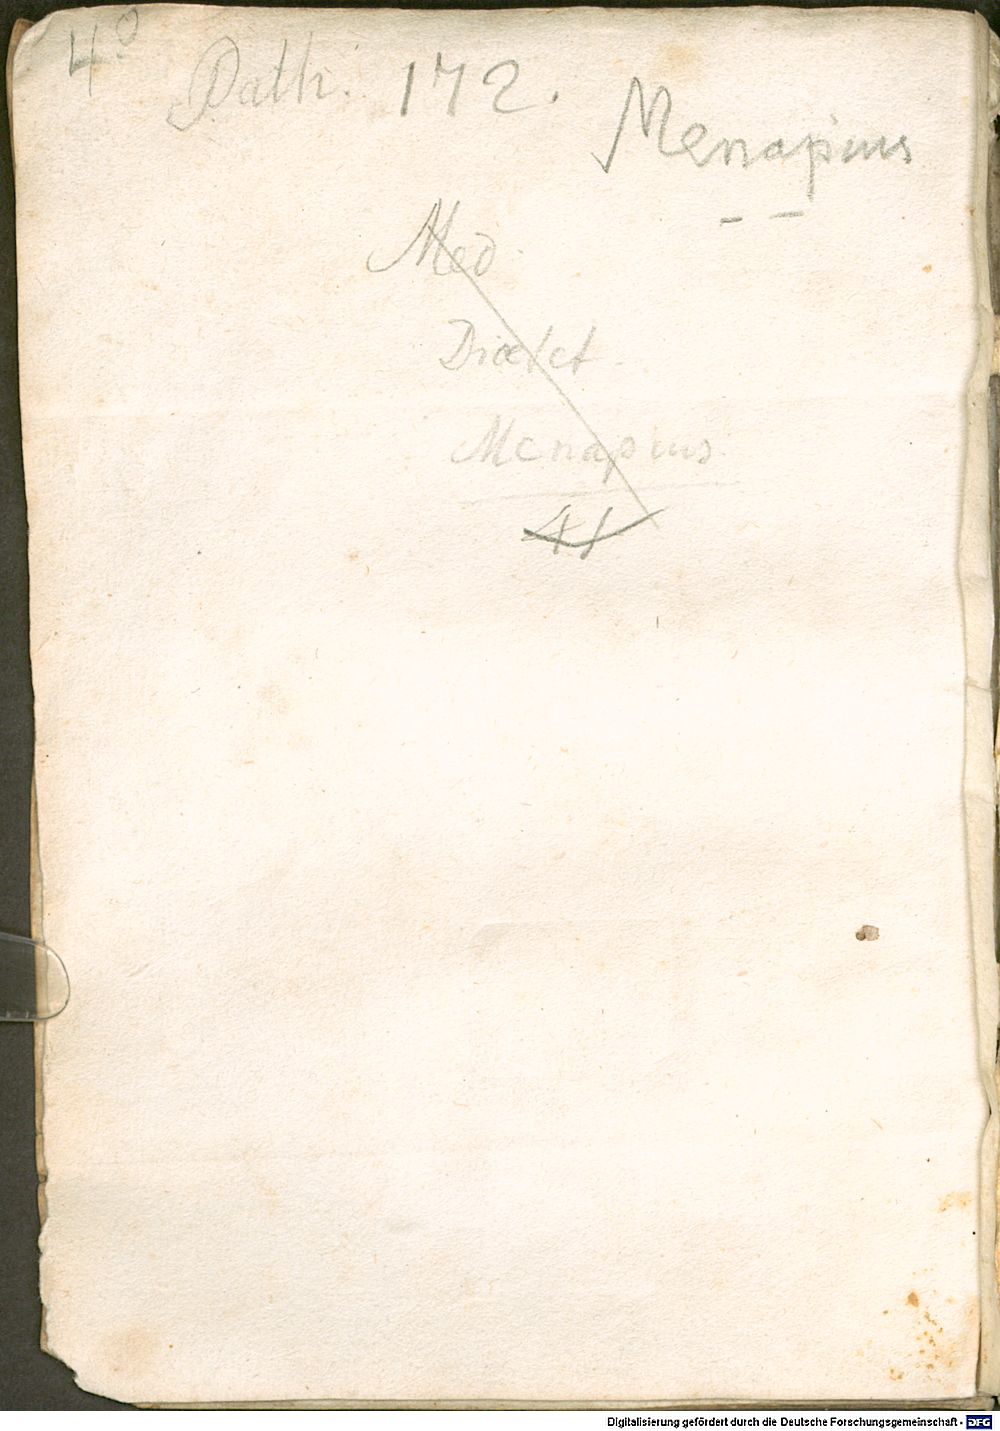 4° Path. 172.
Menapius
Med.
Diætet.
Menapius.
41
Digitalisierung gefördert durch die Deutsche Forschungsgemeinschaft - DFG